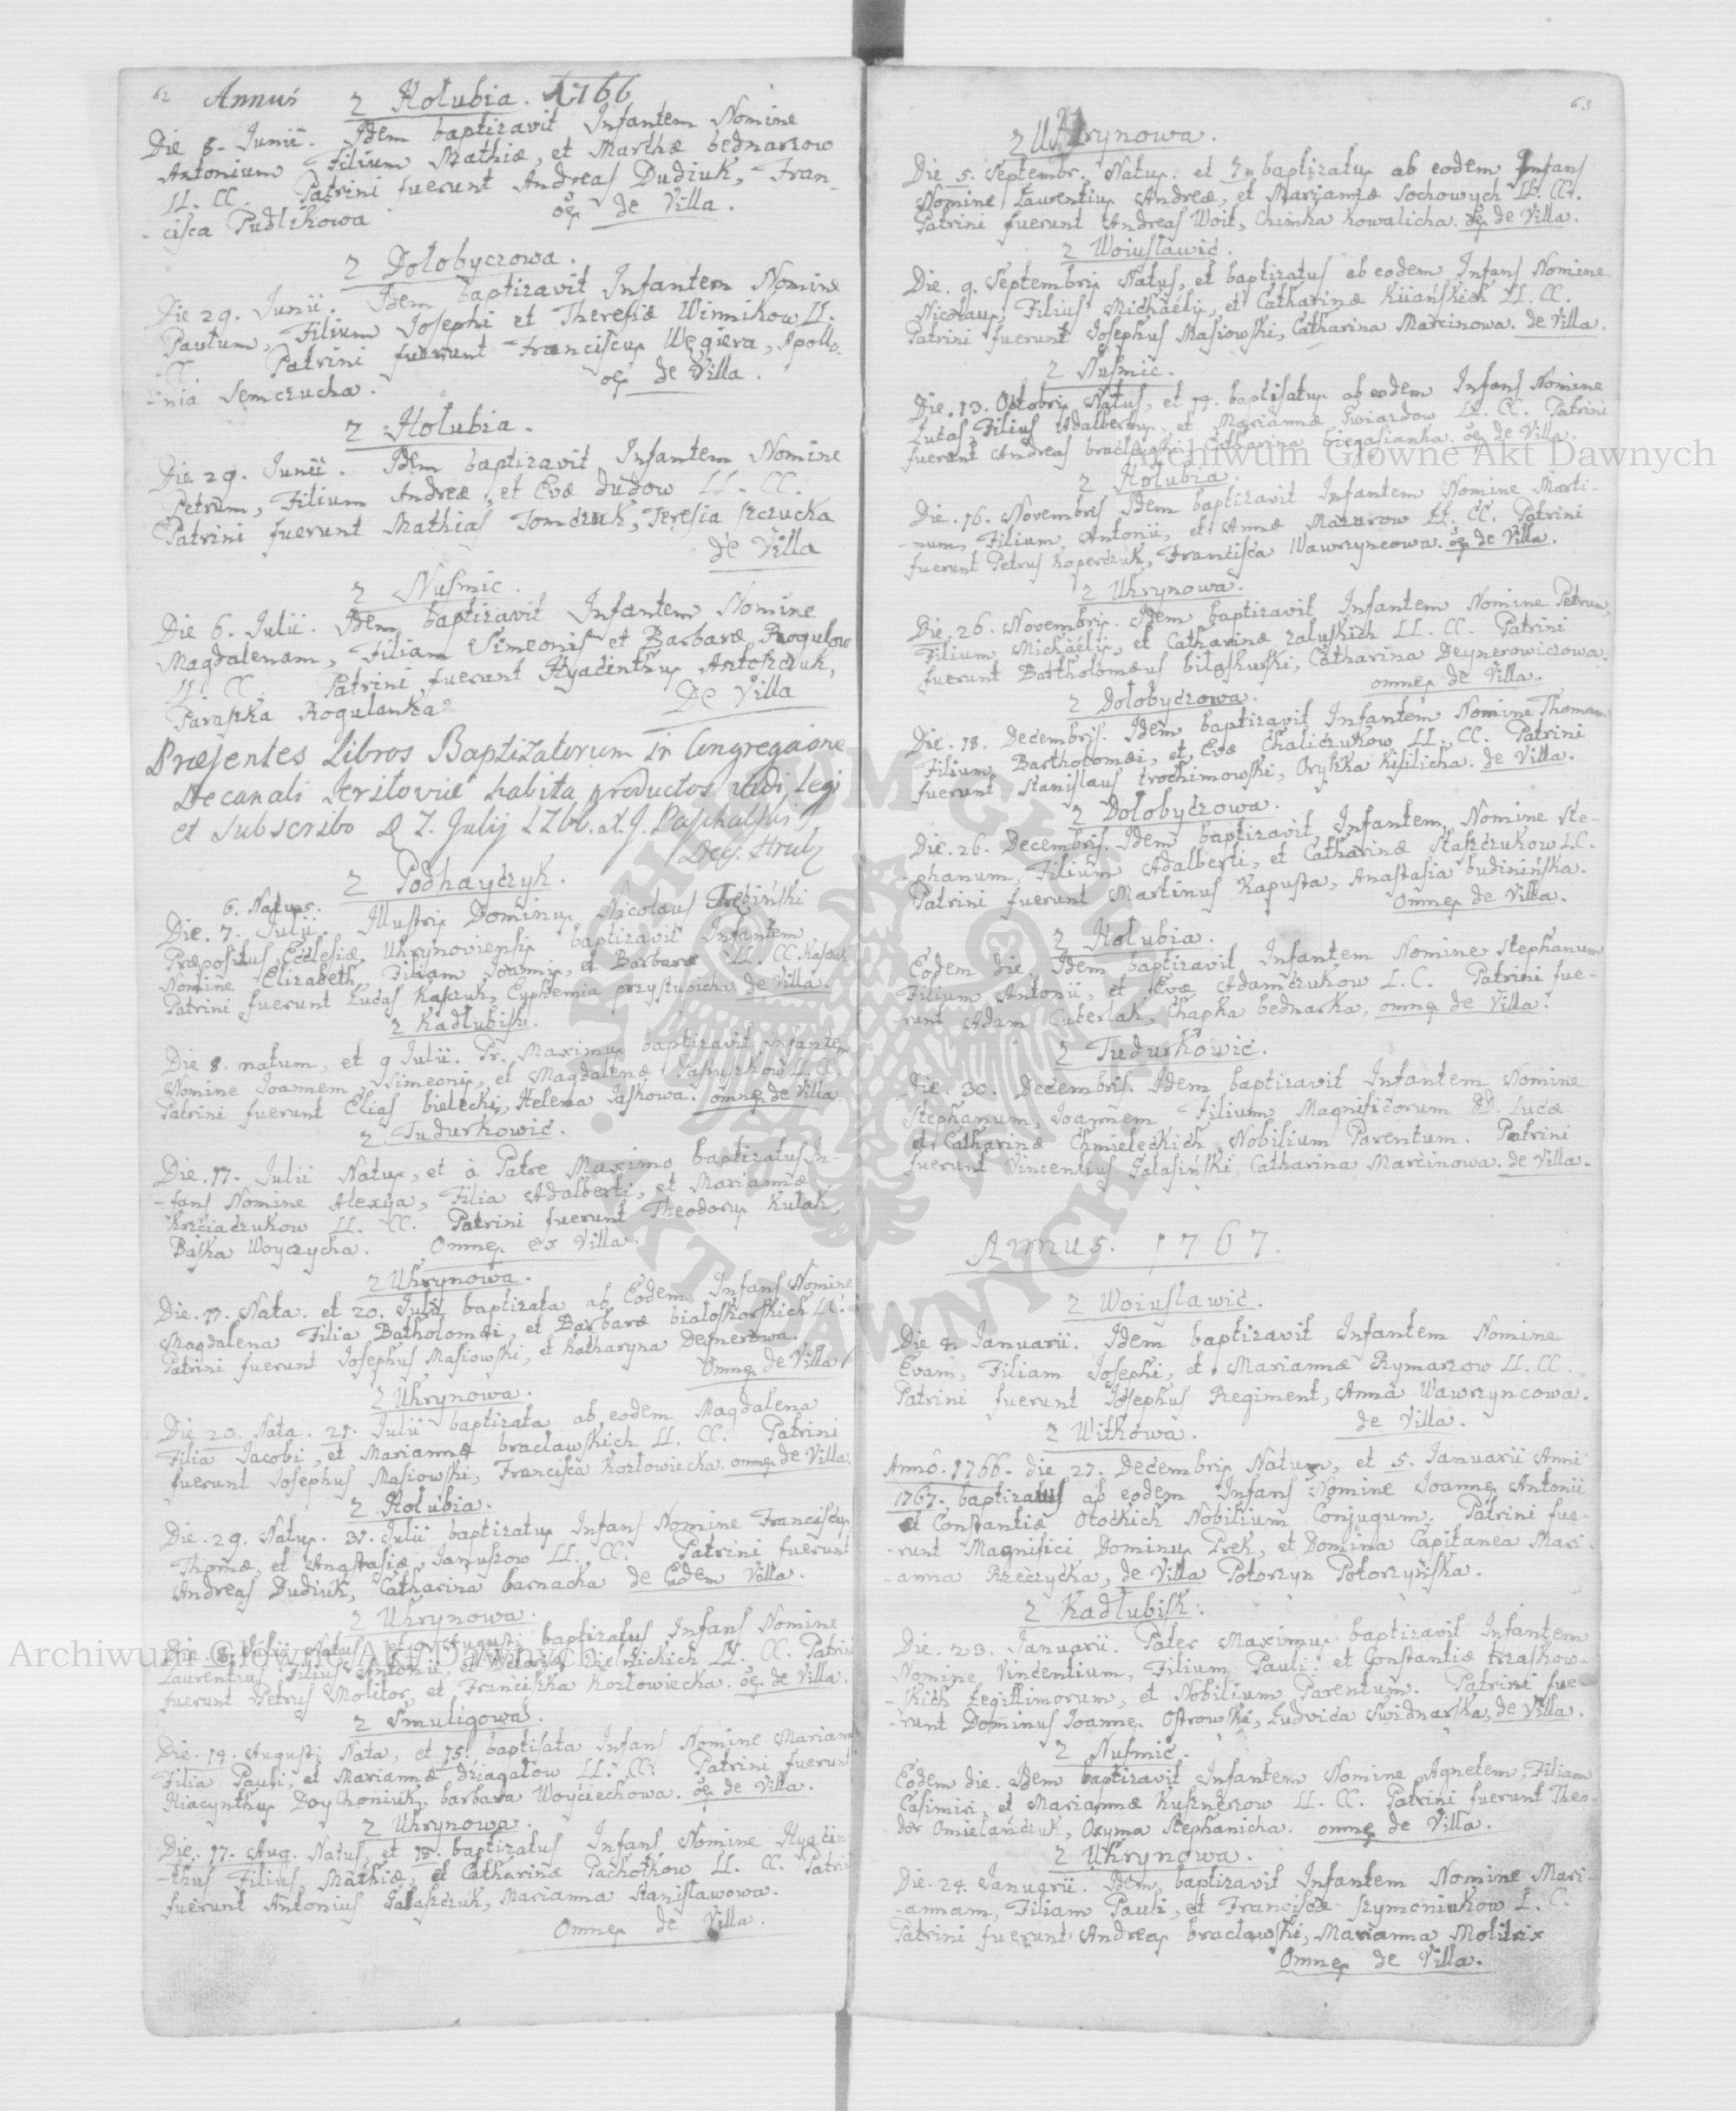 62 Annus 1766
z Hołubia.
Die 8. Junii. Idem baptizavit Infantem Nomine
Antonium Filium Mathiæ, et Marthæ bednarzow
LL. CC. Patrini fuerunt Andreas Dudiuk, Fran-
-cisca Pudlikowa oēs de Villa.
z Dołobyczowa.
Die 29. Junii. Idem baptizavit Infantem Nomine
Paulum, Filium Josephi et Theresiæ Winnikow LL.
CC. Patrini fuerunt Franciscus Węgiera, Apollo-
-nia Semczucha. oēs de Villa.
z Hołubia.
Die 29. Junii. Idem baptizavit Infantem Nomine
Petrum, Filium Andreæ, et Evæ dudow LL. CC.
Patrini fuerunt Mathias Tomczuk, Teresia szczucka
de Villa
z Nusmic.
Die 6. Julii. Idem baptizavit Infantem Nomine
Magdalenam, Filiam Simeonis et Barbaræ Rogulow
LL. CC. Patrini fuerunt Hyacinthus Antoszczuk,
Paraszka Rogulanka De Villa
Præsentes Libros Baptizatorum In Congregaōne
Decanali habita productos vidi, legi
et subscribo D 7. Julij 1766.
Dec. Hrub
z Podhayczyk.
6. Natus.
Die. 7. Julii. Illustris Dominus Nicolaus
Præpositus Ecclesiæ Uhrynoviensis baptizavit Infantem
Nomine Elizabeth, Filiam Joannis, et Barbaræ LL. CC.
Patrini fuerunt Lucas Kaszuk, Euphemia przystupicha de Villa.
z Kadłubisk.
Die 8. natum, et 9 Julii. Pr. Maximus baptizavit Infantem
Nomine Joannem, Simeonis, et Magdalenæ LL. CC.
Patrini fuerunt Elias bielecki, Helena Jaśkowa. omnes de Villa
z Tudurkowic.
Die. 17. Julii Natus, et à Patre Maximo baptizatus In-
-fans Nomine Alexya, Filia Adalberti, et Mariannæ
Krzciaczukow LL. CC. Patrini fuerunt Theodorus Kułak,
Baśka Woyczycha. Omnes ex Villa.
z Uhrynowa.
Die. 17. Nata. et 20. Julii baptizata ab Eodem Infans Nomine
Magdalena Filia Batholomæi, et Barbaræ białoskorskich LL. CC.
Patrini fuerunt Josephus Masiowski, et Katharyna Deynerowa.
Omnes de Villa
z Uhrynowa.
Die 20. Nata. 21. Julii baptizata ab eodem Magdalena
Filia Jacobi, et Mariannæ bracławskich LL. CC. Patrini
fuerunt Josephus Masiowski, Francisca Kozłowiecka. omnes de Villa.
z Hołubia.
Die. 29. Natus. 31. Julii baptizatus Infans Nomine Franciscus
Thomæ, et Anastasiæ, Januszow LL. CC. Patrini fuerunt
Andreas Dudiuk, Catharina barnacka de Eadem Villa.
z Uhrynowa.
Die. 8. Natus, et 9. Augusti baptizatus Infans Nomine
Laurentius, Filius Antonii, et LL. CC. Patrini
fuerunt Petrus Molitor, et Franciszka Kozłowiecka. oēs. de Villa.
z Smuligowa.
Die. 14. Augusti Nata, et 15. baptisata Infans Nomine Marianna
Filia Pauli, et Mariannæ dziagałow LL. CC. Patrini fuerunt
Hiacynthus Doychoniuk, barbara Woyciechowa. oēs de Villa.
z Uhrynowa.
Die. 17. Aug. Natus, et 18. baptizatus Infans Nomine Hyacin-
-thus Filius, Mathiæ, et Catharinæ Pachołkow LL. CC. Patrini
fuerunt Antonius Gałaszczuk, Marianna Stanisławowa.
Omnes de Villa.
63
z Uhrynowa.
Die. 5. Septembr. Natus. et 7. baptizatus ab eodem Infans
Nomine Laurentius Andreæ, et Mariannæ Sochowych LL. CC.
Patrini fuerunt Andreas Woit, Chimka Kowalicha. oēs de Villa.
z Woiusławic.
Die. 9. Septembris Natus, et baptizatus ab eodem Infans Nomine
Nicolaus, Filius Michaëlis, et Catharinæ Kiiańskich LL. CC.
Patrini fuerunt Josephus Masiowski, Catharina Marcinowa. de Villa.
z Nusmic.
Die. 13. Octobris Natus, et 14. baptisatus ab eodem Infans Nomine
Lucas, Filius Adalberti, et Mariannæ Gwiazdow LL. CC. Patrini
fuerunt Andreas bracławski, Catharina biegasianka. oēs de Villa.
z Hołubia.
Die. 16. Novembris Idem baptizavit Infantem Nomine Marti-
-num, Filium Antonii, et Annæ Mazurow LL. CC. Patrini
fuerunt Petrus Koperczuk, Francisca Wawrzyncowa. oēs de Villa.
z Uhrynowa.
Die. 26. Novembris. Idem baptizavit Infantem Nomine Petrum,
Filium Michaëlis, et Catharinæ załuskich LL. CC. Patrini
fuerunt Bartholomæus Catharina Deynerowiczowa.
omnes de Villa.
z Dołobyczowa.
Die. 18. Decembris. Idem baptizavit Infantem Nomine Thomam
Filium Bartholomæi, et Evæ Chaliczukow LL. CC. Patrini
fuerunt Stanislaus trochimowski, Oryszka Kisilicha. de Villa.
z Dołobyczowa.
Die. 26. Decembris. Idem baptizavit Infantem Nomine Ste-
-phanum, Filium Adalberti, et Catharinæ Staszczukow L.C.
Patrini fuerunt Martinus Kapusta, Anastasia budinińska.
Omnes de Villa.
z Hołubia.
Eodem die. Idem baptizavit Infantem Nomine Stephanum
Filium Antonii, et Evæ Adamczukow L. C. Patrini fue-
-runt Adam Cuberlak, Chapka bednarka, omnes de Villa.
z Tudurkowic.
Die. 30. Decembris Idem baptizavit Infantem Nomine
Stephanum, Joannem Filium Magnificorum DD. Lucæ
et Catharinæ Chmieleckich Nobilium Parentum. Patrini
fuerunt Vincentius Galasiński, Catharina Marcinowa. de Villa.
Annus. 1767.
z Woiusławic.
Die 4. Januarii. Idem baptizavit Infantem Nomine
Evam, Filiam Josephi, et Mariannæ Rymarzow LL. CC.
Patrini fuerunt Josephus Regiment, Anna Wawrzyncowa.
de Villa.
z Witkowa.
Anno. 1766. die 27. Decembris Natus, et 5. Januarii Anni
1767. baptizatus ab eodem Infans Nomine Joannes Antonii
et Constantiæ Otockich Nobilium Conjugum. Patrini fue-
-runt Magnifici Dominus Prek, et Domina Capitanea Mari-
-anna Rzeczycka, de Villa Potorzyn Potorzyńska.
z Kadłubisk.
Die. 23. Januarii. Pater Maximus baptizavit Infantem
Nomine Vincentium, Filium Pauli et Constantiæ traskow-
-skich Legittimorum, et Nobilium Parentum. Patrini fue-
-runt Dominus Joannes Ostrowski, Ludvica Swidnarska, de Villa.
z Nusmic.
Eodem die. Idem baptizavit Infantem Nomine Agnetem, Filiam
Casimiri, et Mariannæ Kusznerzow LL. CC. Patrini fuerunt Theo-
dor Omielańczuk, Oxyma Stephanicha. omnes de Villa.
z Uhrynowa.
Die. 24. Januarii. Idem baptizavit Infantem Nomine Mari-
-annam, Filiam Pauli, et Franciscæ Szymoniukow L. C.
Patrini fuerunt Andreas bracławski, Marianna Molitrix
Omnes de Villa.
Archiwum Główne Akt Dawnych
Archiwum Główne Akt Dawnych
ARCHIWUM GŁÓWNE AKT DAWNYCH